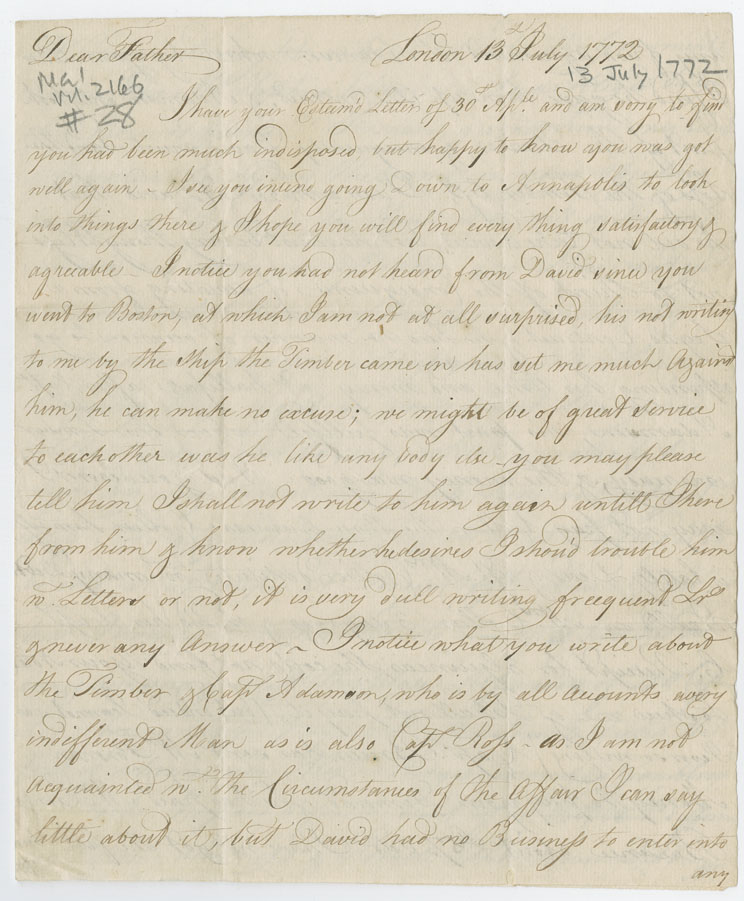 Dear Father London 13th July 1772
Mal 13 July 1772
Vol. 2166
#28
I have your Esteem'd Letter of 30th Aple. and am sorry to find
you had been much indisposed, but happy to know you was got
well again – I see you intend going Down to Annapolis to look
into things there & I hope you will find every thing satisfactory &
agreeable – I notice you had not heard from David since you
went to Boston, at which I am not at all surprised, his not writing
to me by the ship the Timber came in has set me much Against
him, he can make no excuse; we might be of great service
to each other was he like any body else – you may please
tell him I shall not write to him again untill I here
from him & know whether he desires I shou'd trouble him
wt. Letters or not, it is very dull writing freequent Lrs
& never any Answer ~ I notice what you write about
the Timber & Capt Adamson, who is by all Accounts a very
indifferent Man as is also Capt. Ross – as I am not
Acquainted wt. the Circumstances of the Affair I can say
little about it, but David had no Business to enter into
any